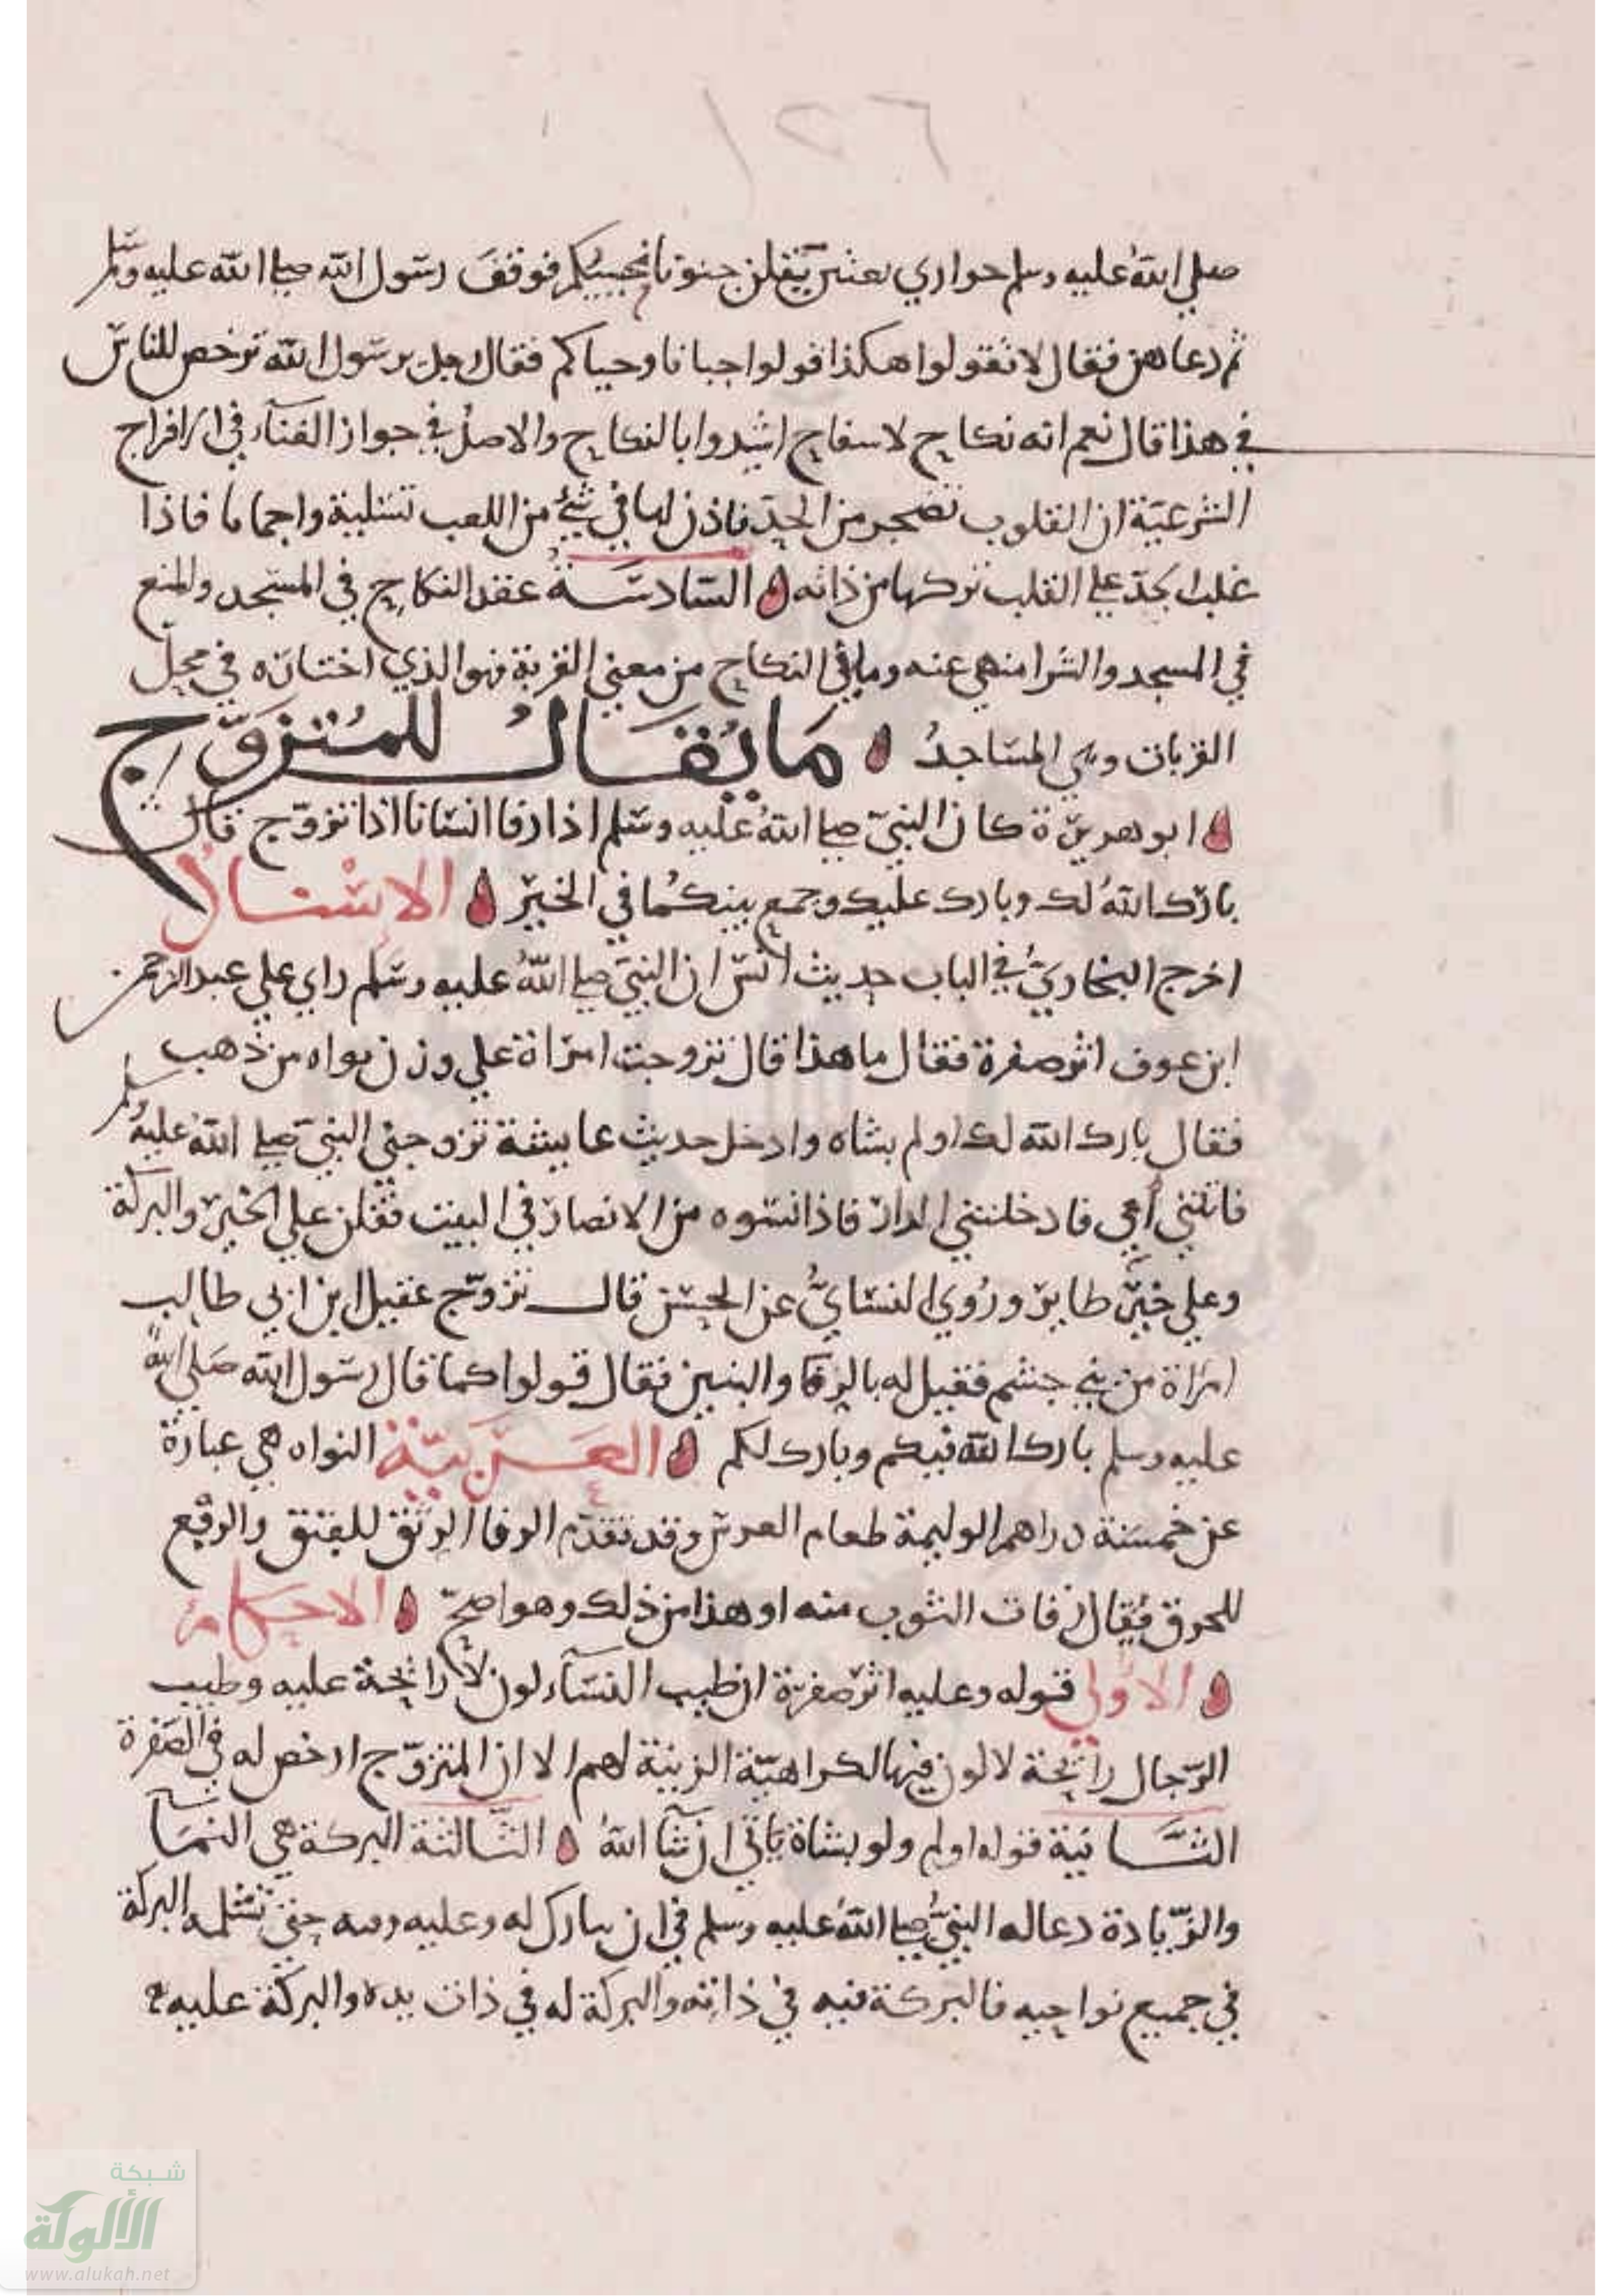 صلي الله عليه وسلم جواري بعثن يتقلن حنونا نحييكم فوقف رسول الله صلي الله عليه وسلم
ثم دعاهن فقال لا تقولوا هكذا قولوا حيانا وحياكم فقال رجل يرسول الله ترخص للناس
في هذا قال نعم انه نكاح لا سفاح اشيدوا بالنكاح والاصل في جواز الغناء في الافراح
الشرعية ان القلوب تضجر من الجد فاذن لها في شئ من اللعب تسلية واجماما فاذا
غلب الجد علي القلب تركها من ذاته السادسة عقد النكاح في المسجد والمنع
في المسجد والشرا منهي عنه وما في النكاح من معني القربة فهو الذي اختاره في محل
القربات وهي المساجد ما يقال للمتزوج
ابو هريرة كان النبي صلي الله عليه وسلم اذا رفا انسانا اذا تزوج قال
بارك الله لك وبارك عليك وجمع بينكما في الخير الاسناد
اخرج البخاري في الباب حديث انس ان النبي صلي الله عليه وسلم راي علي عبد الرحمن
ابن عوف اثر صفرة فقال ما هذا قال تزوجت امراة علي وزن نواه من ذهب
فقال بارك الله لك اولم بشاه وادخل حديث عايشة تزوجني النبي صلي الله عليه وسلم
فاتتني أمي فادخلتني الدار فاذا نسوه من الانصار في البيت فقلن علي الخير والبركة
وعلي خير طاير وروي النسايُّ عن الحسن قال تزوج عقيل ابن ابي طالب
امراة من بني جشم فقيل له بالرفا والبنين فقال قولوا كما قال رسول الله صلي الله
عليه وسلم بارك الله فيكم وبارك لكم العربية النواه هي عبارة
عن خمسة دراهم الوليمة طعام العرس وقد تقدم الرفا الرتق للفتق والرقع
للخرق فيقال رفات الثوب منه او هذا من ذلك وهو اصح الاحكام
الاولي قوله وعليه اثر صفرة ان طيب النساء لون لا رايحة عليه وطيب
الرجال رايحة لا لون فيها لكراهية الزينة لهم الا ان المتزوج ارخص له في الصفرة
الثانية قوله اولم ولو بشاة ياتي ان شا الله الثالثة البركة هي النما
والزيادة دعا له النبي صلي الله عليه وسلم في ان يبارك له وعليه وفيه حتي تشمله البركة
في جميع نواحيه فالبركة فيه في ذاته والبركة له في ذات يده والبركة عليه
شبكة
الألوكة
www.alukah.net